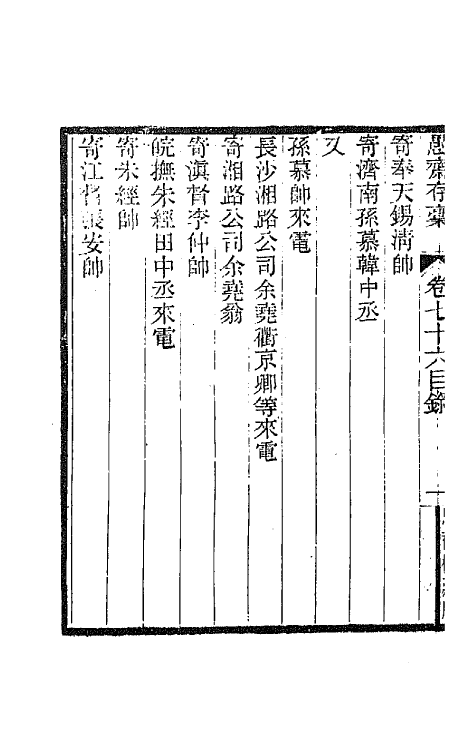 愚齋存稾 卷七十六目錄 一
寄奉天錫淸帥
寄濟南孫慕韓中丞
又
孫慕帥來電
長沙湘路公司余堯衢京卿等來電
寄湘路公司余堯翁
寄滇督李仲帥
皖撫朱經田中丞來電
寄朱經帥
寄江督張安帥